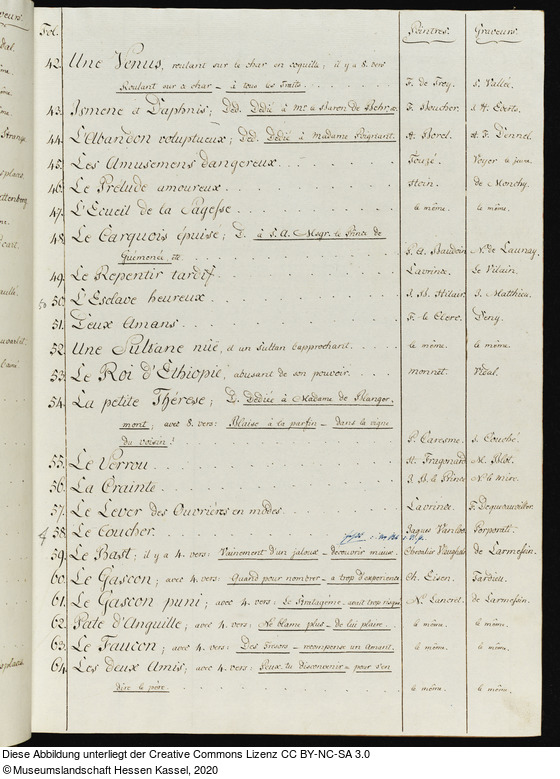 Fol. Peintres. Graveurs.
42. Une Venus, roulant sur le char en coquille; il y a 8. vers
Roulant sur a char – à tous les Traits. F. de Troy. S. Vallée.
43. Ismene et Daphnis; Ded. Dédié à Mr. le Baron de F. Boucher.
44. L'Abandon voluptueux; Ded. Dédié à Madame A. Borel.
45. Les Amusemens dangereux Touzé. Voyer le jeune.
46. Le Prélude amoureux Stein. de Monchy.
47. L'Ecueil de la Sagesse le même. le même.
48. Le Carquois épuisé; D. à S. A. Msgr. le Prince de
Guémené P. A. Baudoin N. de Launay.
49. Le Repentir tardif Lavrince. le Vilain.
50. L'Esclave heureux J. B. Hilair. J. Mathieu.
51. Deux Amans F. le Clerc. Deny.
52. Une Sultane nüe, et un Sultan l'approchant. le même. le même.
53. Le Roi d'Ethiopie, abusant de son pouvoir. monnet. Vidal.
54. La petite Thérèse; D. Dédiée à Madame de
mont; avec 8. vers: Blaise à la parfin – dans la vigne
du voisin! P. Caresme. J. Couché.
55. Le Verrou H. Fragonard M. Blot.
56. La Crainte J. B. le Prince N. le Mire.
57. Le Lever des Ouvrières en modes. Lavrince. F. Dequevauviller.
58. Le Coucher. Jaques Vanloo Porporati.
59. Le Bast; il y a 4. vers: Vainement d'un jaloux – decouvrir Chevalier de Larmessin.
60. Le Gascon; avec 4. vers: Quand pour nombrer – a trop d'experience. Ch. Eisen. Tardieu.
61. Le Gascon puni; avec 4. vers: Le Stratagème avait trop N. Lancret. de Larmessin.
62. Pate d'Anguille; avec 4. vers: Ne blame plus – de lui plaire. le même. le même.
63. Le Faucon; avec 4. vers: Des Tresors – recompense un Amant. le même. le même.
64. Les deux Amis; avec 4. vers: Peux tu disconvenir – pour s'en
dire le père. le même. le même.
Diese Abbildung unterliegt der Creative Commons Lizenz CC BY-NC-SA 3.0
© Museumslandschaft Hessen Kassel, 2020